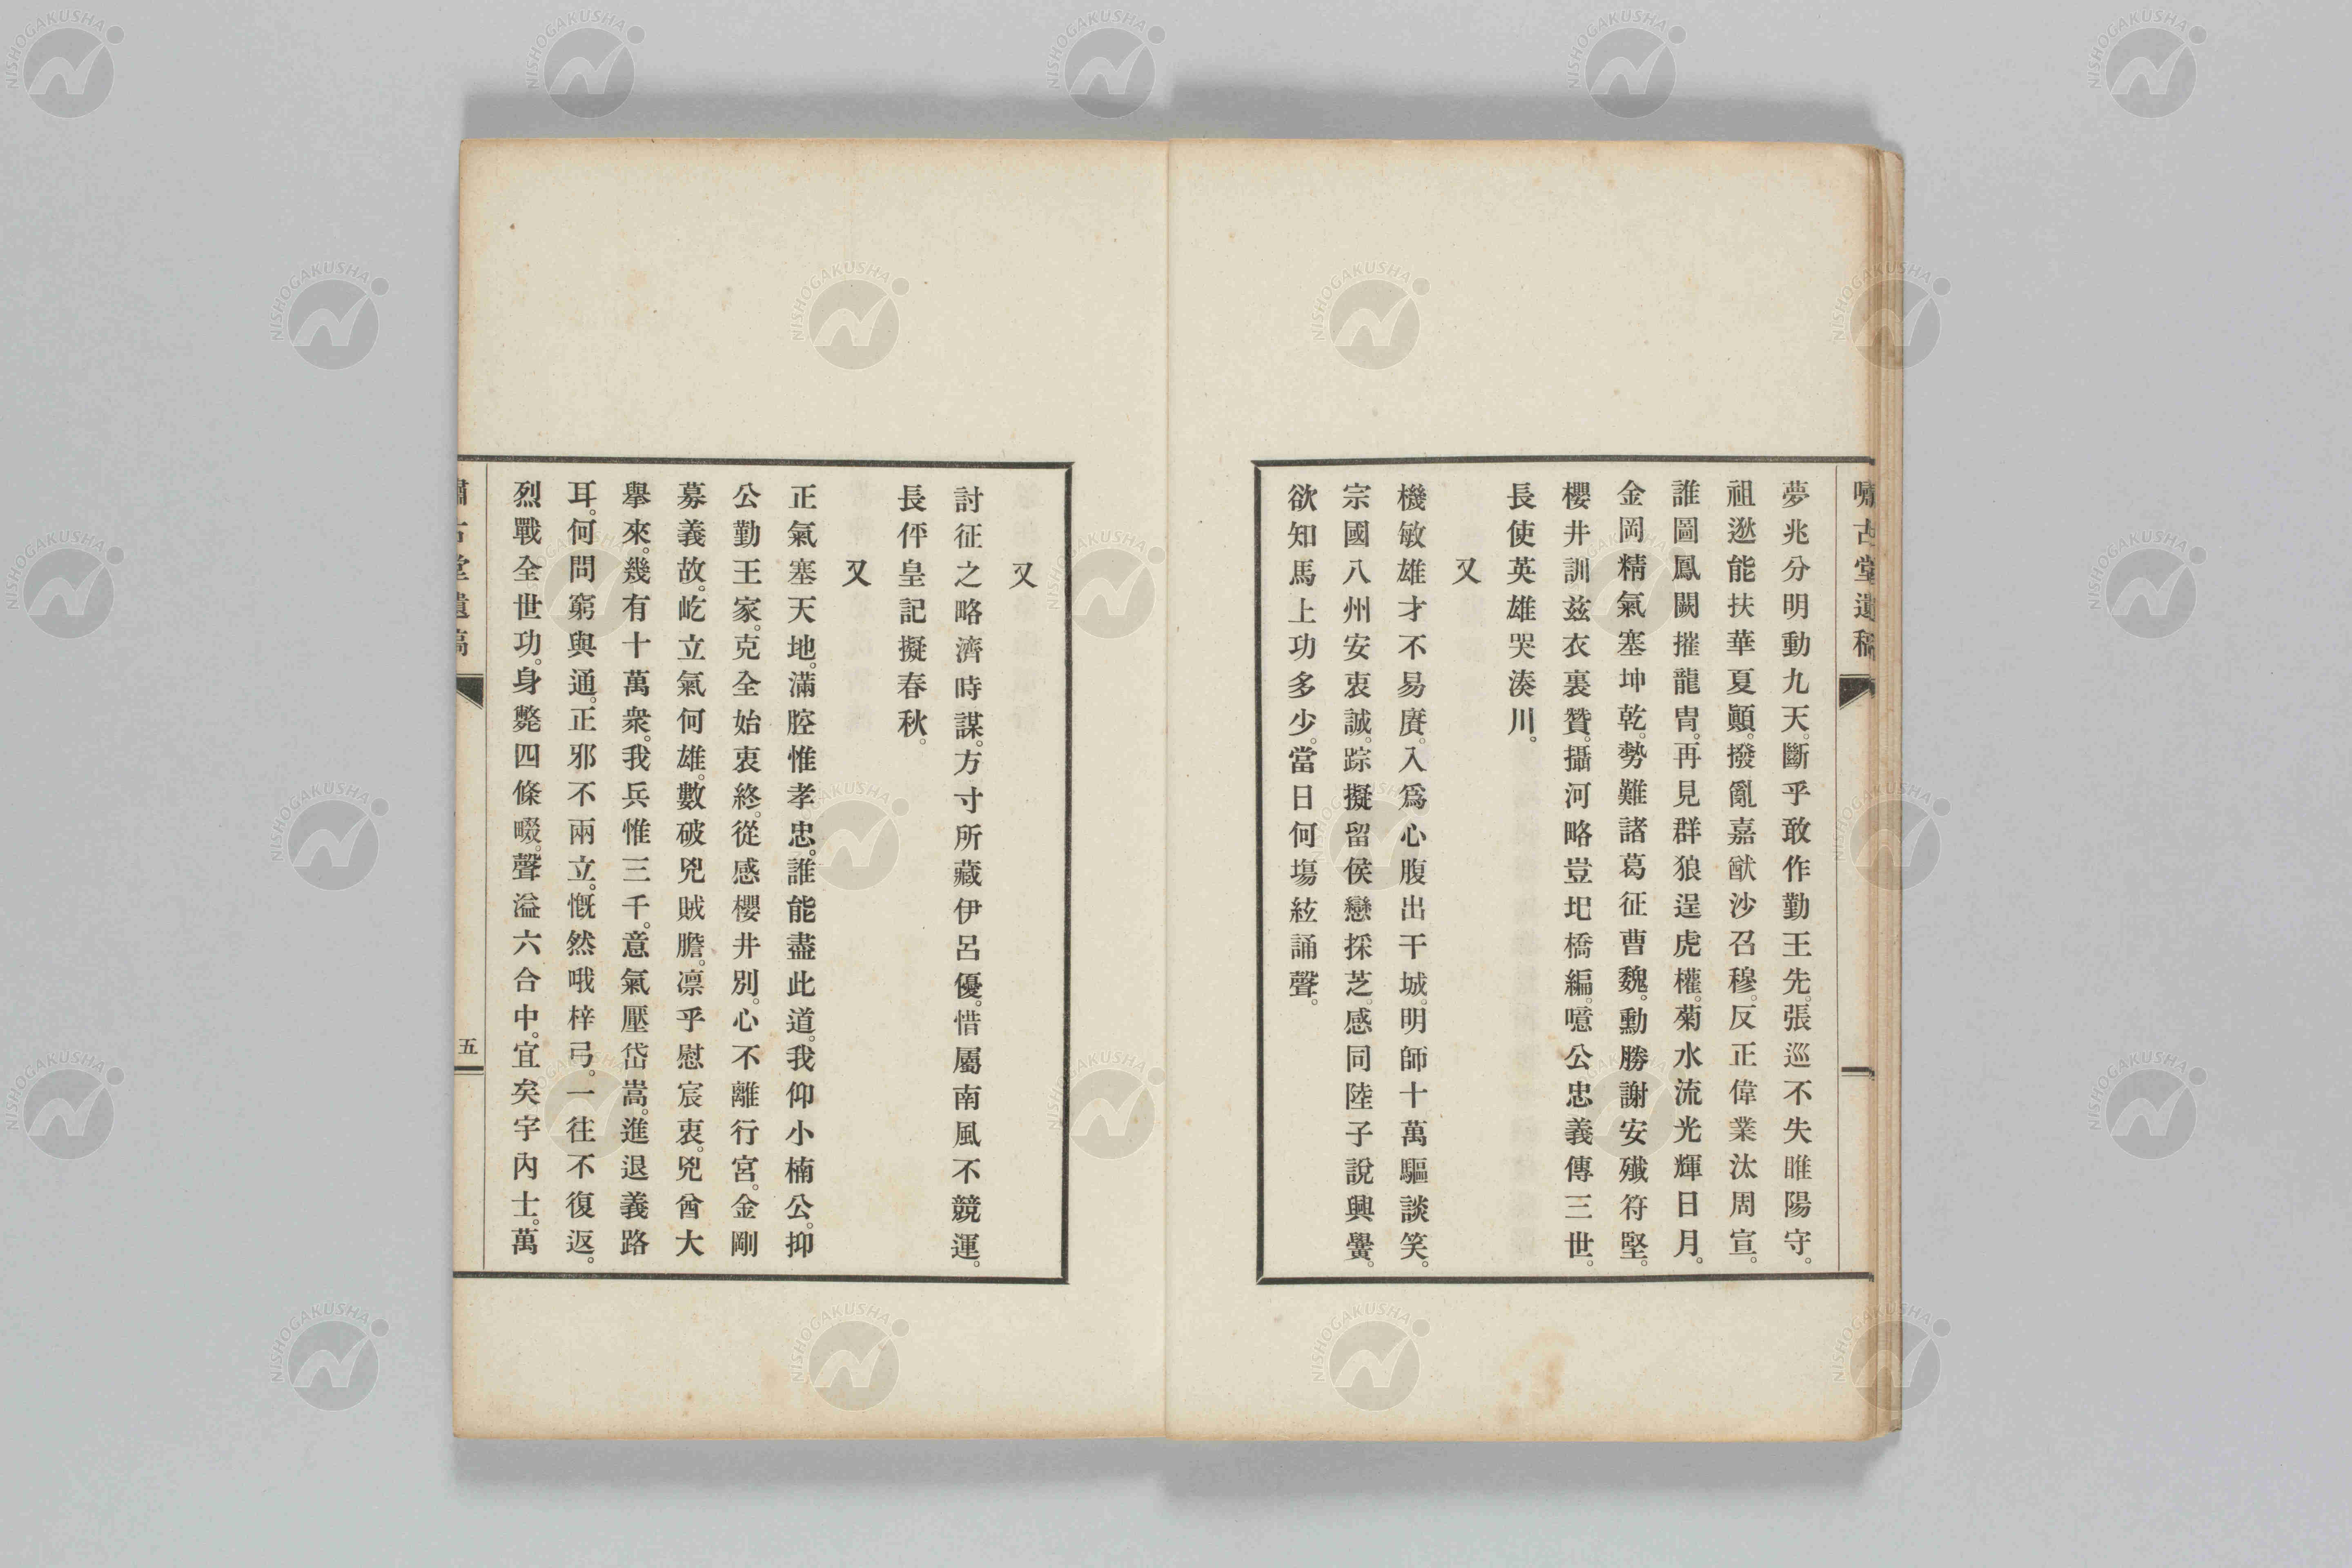 嘯古堂遺稿
夢兆分明動九天。斷乎敢作勤王先。張巡不失睢陽守。
祖逖能扶華夏顚。撥亂嘉猷沙召穆。反正偉業汰周宣。
誰圖鳳闕摧龍胄。再見群狼逞虎權。菊水流光輝日月。
金岡精氣塞坤乾。勢難諸葛征曹魏。勳勝謝安殲符堅。
櫻井訓玆衣裏贊。攝河略豈圯橋編。噫公忠義傳三世。
長使英雄哭湊川。
又
機敏雄才不易賡。入爲心腹出干城。明師十萬驅談笑。
宗國八州安衷誠。踪擬留侯戀採芝。感同陸子說興黌。
欲知馬上功多少。當日何塲絃誦聲。
又
討征之略濟時謀。方寸所藏伊呂優。惜屬南風不競運。
長伻皇記擬春秋。
又
正氣塞天地。滿腔惟孝忠。誰能盡此道。我仰小楠公。抑
公勤王家。克全始衷終。從感櫻井別。心不離行宮。金剛
募義故。屹立氣何雄。數破兇賊膽。凛乎慰宸衷。兇酋大
擧來。幾有十萬衆。我兵惟三千。意氣壓岱嵩。進退義路
耳。何問窮與通。正邪不兩立。慨然哦梓弓。一往不復返。
烈戰全世功。身斃四條畷。聲溢六合中。宜矣宇內士。萬
嘯古堂遺稿
五
NISHOGAKUSHA